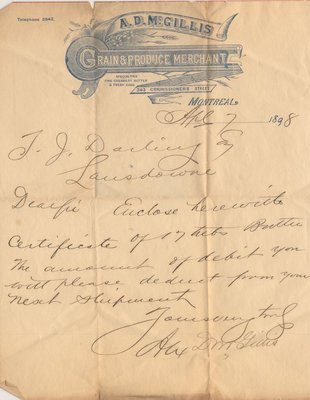 Telephone 2842.
A. D. McGILLIS
GRAIN & PRODUCE MERCHANT
SPECIALTIES
FINE CREAMERY BUTTER
& FRESH EGGS
343 COMMISSIONERS STREET
MONTREAL
Apl 7 1898
T. J. Darling Esq
Lansdowne
Dear Sir Enclose herewith
Certificate of 17 tubs Butter
The amount of debit you
will please deduct from your
next shipment
Yours truly
Alex D McGillis